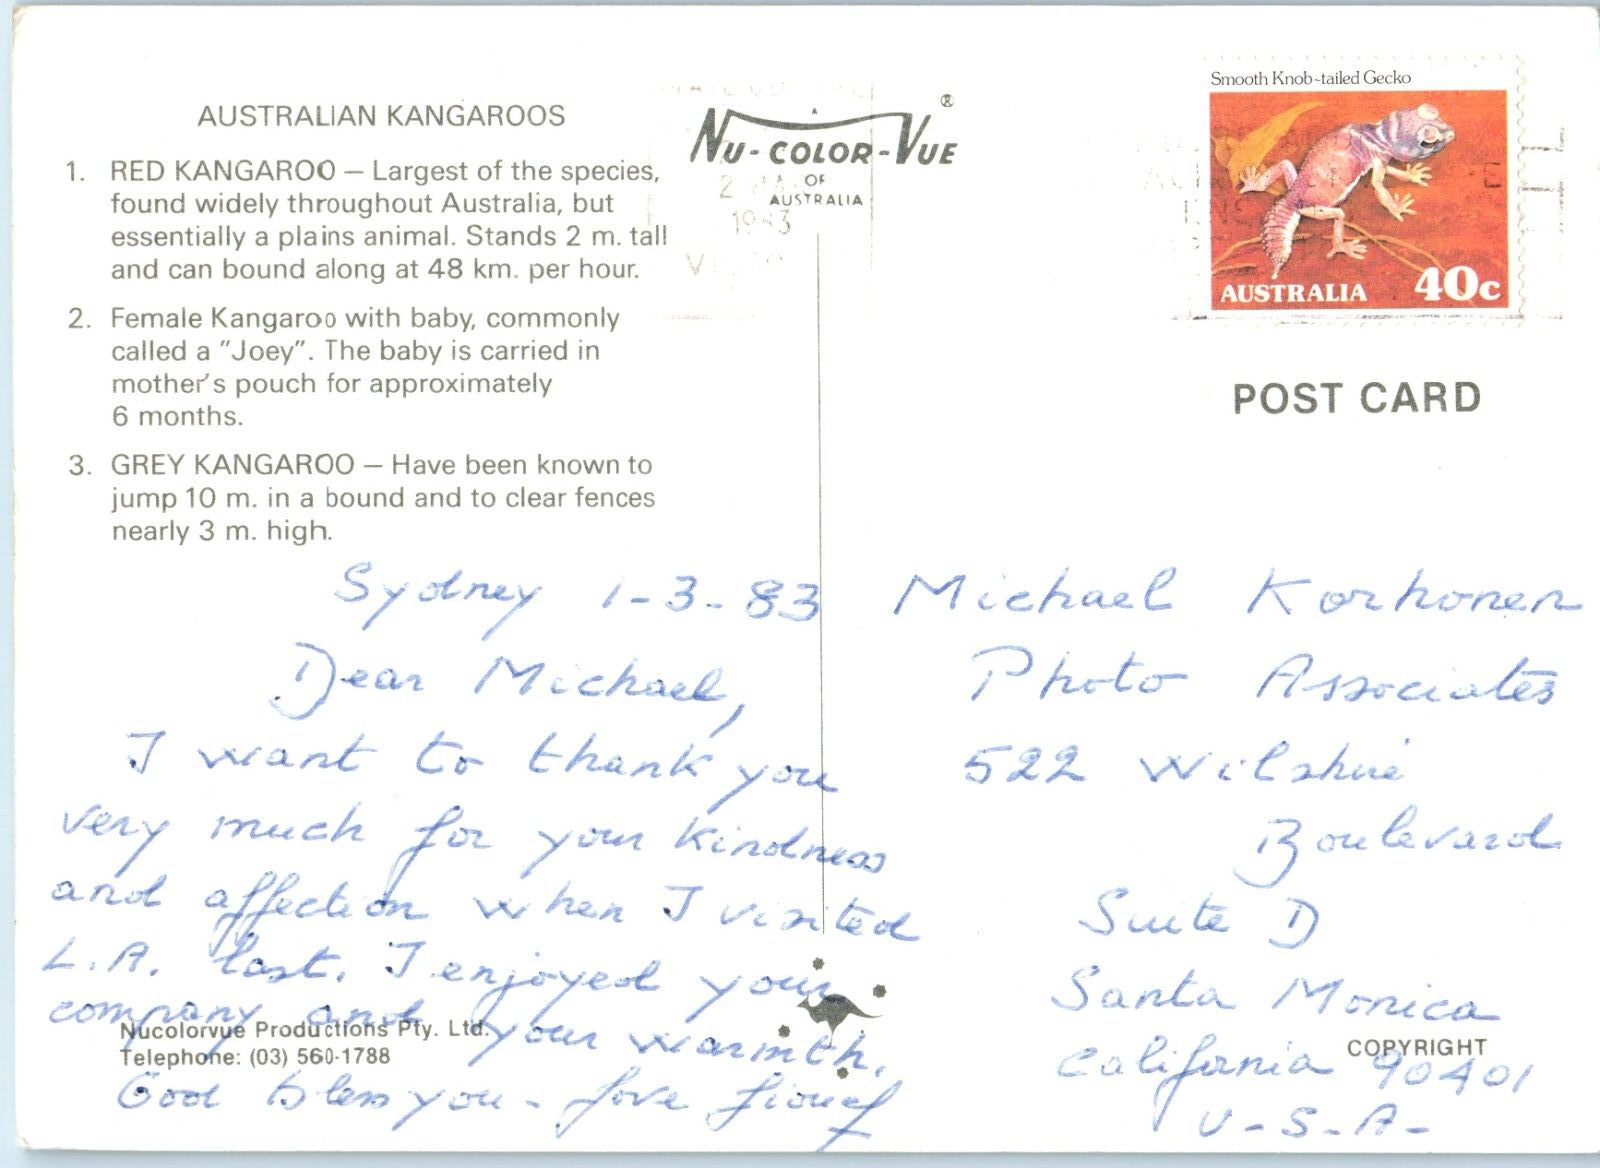 AUSTRALIAN KANGAROOS
1. RED KANGAROO — Largest of the species,
found widely throughout Australia, but
essentially a plains animal. Stands 2 m. tall
and can bound along at 48 km. per hour.
2. Female Kangaroo with baby, commonly
called a "Joey". The baby is carried in
mother's pouch for approximately
6 months.
3. GREY KANGAROO — Have been known to
jump 10 m. in a bound and to clear fences
nearly 3 m. high.
NU-COLOR-VUE ®
OF
AUSTRALIA
1983
Smooth Knob-tailed Gecko
AUSTRALIA 40c
POST CARD
Sydney 1-3-83
Dear Michael,
I want to thank you
very much for your kindness
and affection when I visited
L.A. last. I enjoyed your
company and your warmth.
God bless you - love
Michael Korhonen
Photo Associates
522 Wilshire
Boulevard
Suite D
Santa Monica
California 90401
U-S-A-
Nucolorvue Productions Pty. Ltd.
Telephone: (03) 560-1788
COPYRIGHT